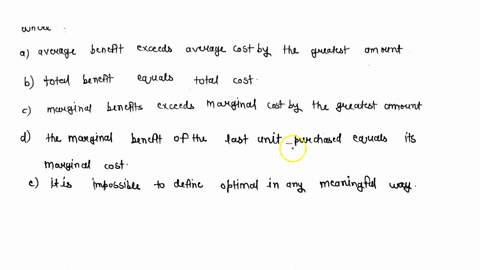 a) average benefit exceeds average cost by the greatest amount
b) total benefit equals total cost.
c) marginal benefits exceeds marginal cost by the greatest amount
d) the marginal benefit of the last unit purchased equals its
marginal cost.
e) It is impossible to define optimal in any meaningful way.